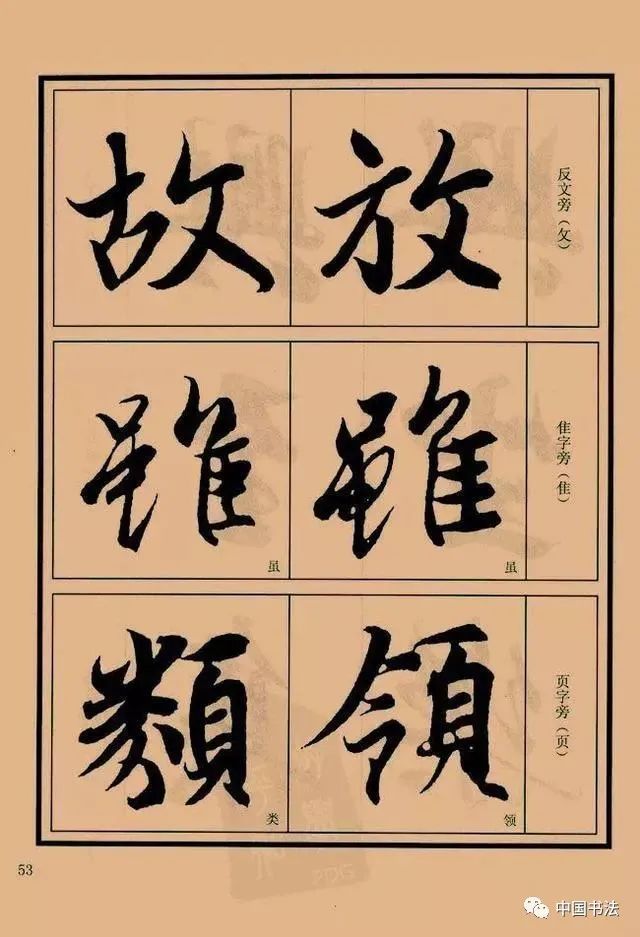 反文旁（攵）
放
故
隹字旁（隹）
雖
虽
雖
虽
页字旁（页）
領
领
類
类
53
中国书法